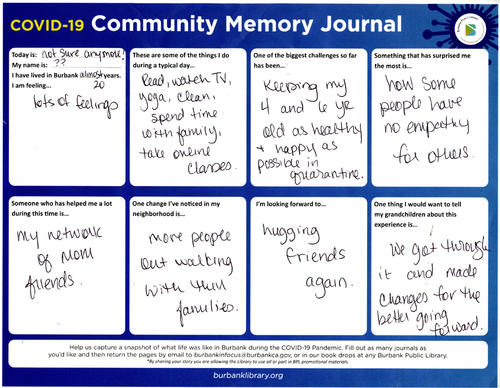 COVID-19 Community Memory Journal
BURBANK PUBLIC LIBRARY
Today is: not sure anymore!
My name is: ??
I have lived in Burbank almost 20 years.
I am feeling...
lots of feelings
These are some of the things I do
during a typical day...
Read, watch TV,
yoga, clean,
spend time
with family,
take online
classes.
One of the biggest challenges so far
has been...
Keeping my
4 and 6 yr
old as healthy
+ happy as
possible in
quarantine.
Something that has surprised me
the most is...
how some
people have
no empathy
for others.
Someone who has helped me a lot
during this time is...
my network
of mom
friends.
One change I've noticed in my
neighborhood is...
more people
out walking
with their
families.
I'm looking forward to...
hugging
friends
again.
One thing I would want to tell
my grandchildren about this
experience is...
We got through
it and made
changes for the
better going
forward.
Help us capture a snapshot of what life was like in Burbank during the COVID-19 Pandemic. Fill out as many journals as
you'd like and then return the pages by email to burbankinfocus@burbankca.gov, or in our book drops at any Burbank Public Library.
*By sharing your story you are allowing the Library to use all or part in BPL promotional materials.
burbanklibrary.org